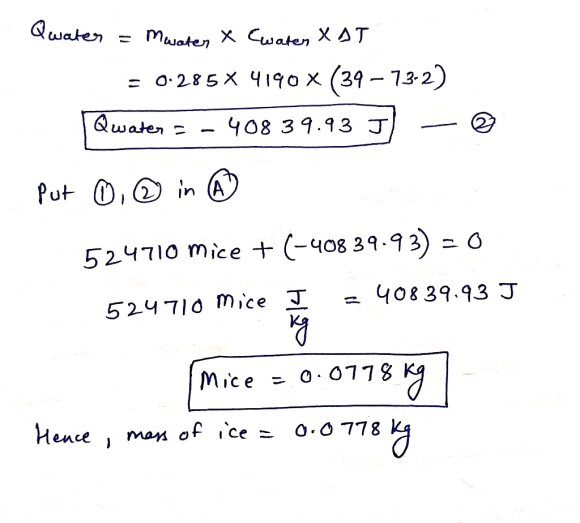 Qwater = mwater X Cwater X ΔT
= 0.285 X 4190 X (39 – 73.2)
Qwater = – 40839.93 J — ②
Put ①, ② in Ⓐ
524710 mice + (-40839.93) = 0
524710 mice J/kg = 40839.93 J
Mice = 0.0778 kg
Hence, mass of ice = 0.0778 kg